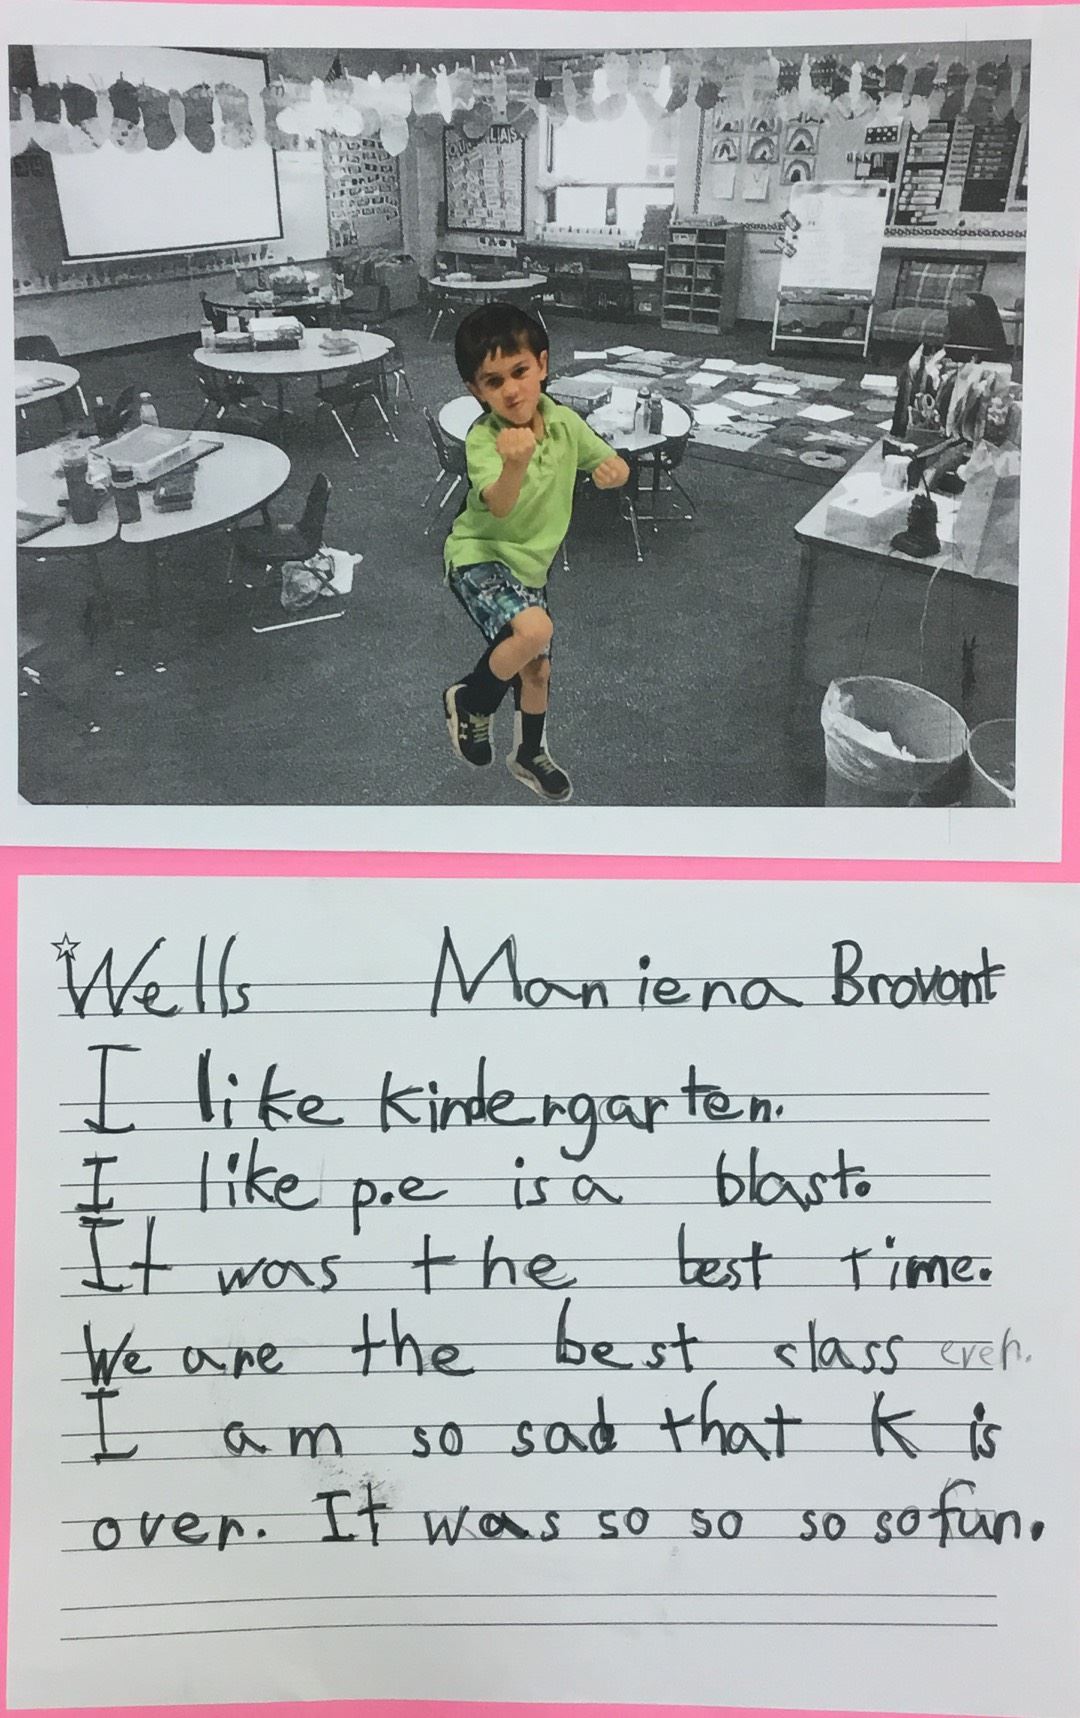 Wells Maniena Brovont
I like kindergarten.
I like p.e is a blast.
It was the best time.
We are the best class ever.
I am so sad that K is
over. It was so so so so fun.